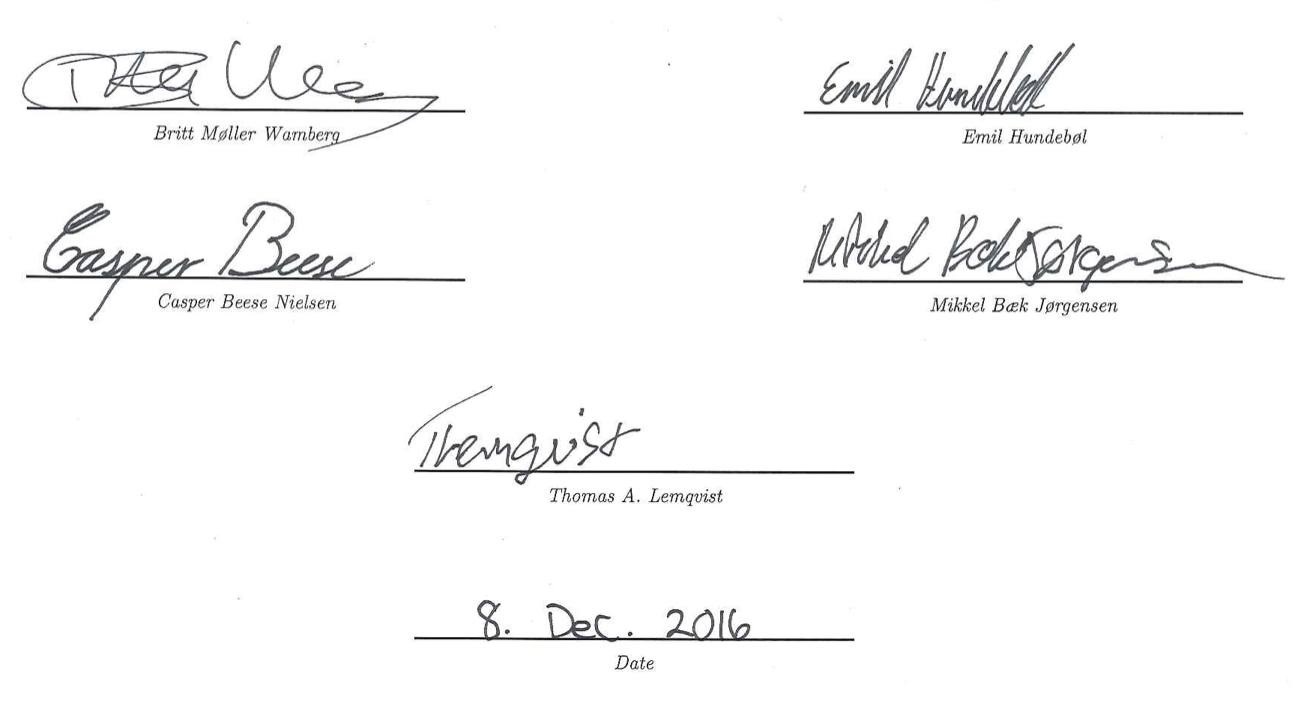 Britt Møller Wamberg
Emil Hundebøl
Emil Hundebøl
Casper Beese
Mikkel Bæk Jørgensen
Casper Beese Nielsen
Mikkel Bæk Jørgensen
TLemqvist
Thomas A. Lemqvist
8. Dec. 2016
Date